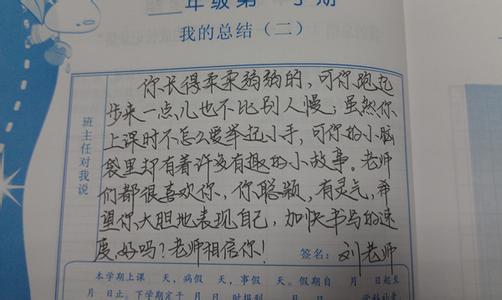 年级第 学期
我的总结（二）
班主任对我说
你长得柔柔弱弱的，可你跑起
步来一点儿也不比别人慢；虽然你
上课时不怎么爱举起小手，可你的小脑
袋里却有着许多有趣的小故事。老师
们都很喜欢你，你聪颖，有灵气，希
望你大胆地表现自己，加快书写的速
度，好吗？老师相信你！
签名：刘老师
本学期上课 天，病假 天，事假 天。假期自 月 日起至
月 日止。下学期定于 月 日